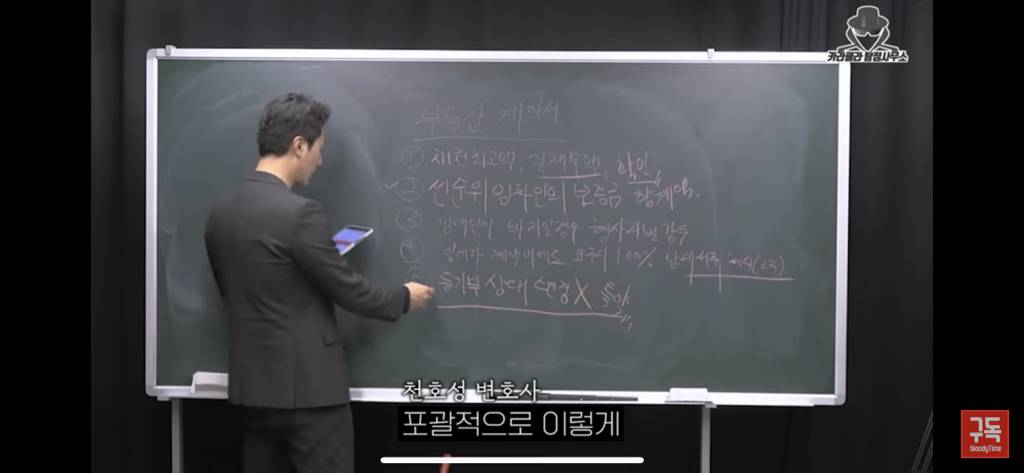 카라큘라 탐정사무소
부동산 계약서
① 채권최고액, 실채무액, 확인
② 선순위 임차인의 보증금 합계액.
③ 임대인이 바지일경우 형사처벌 감수
④ 임차인 계약 100%
⑤ 등기부 상태 변경 X
천호성 변호사
포괄적으로 이렇게
구독
bloodyTime